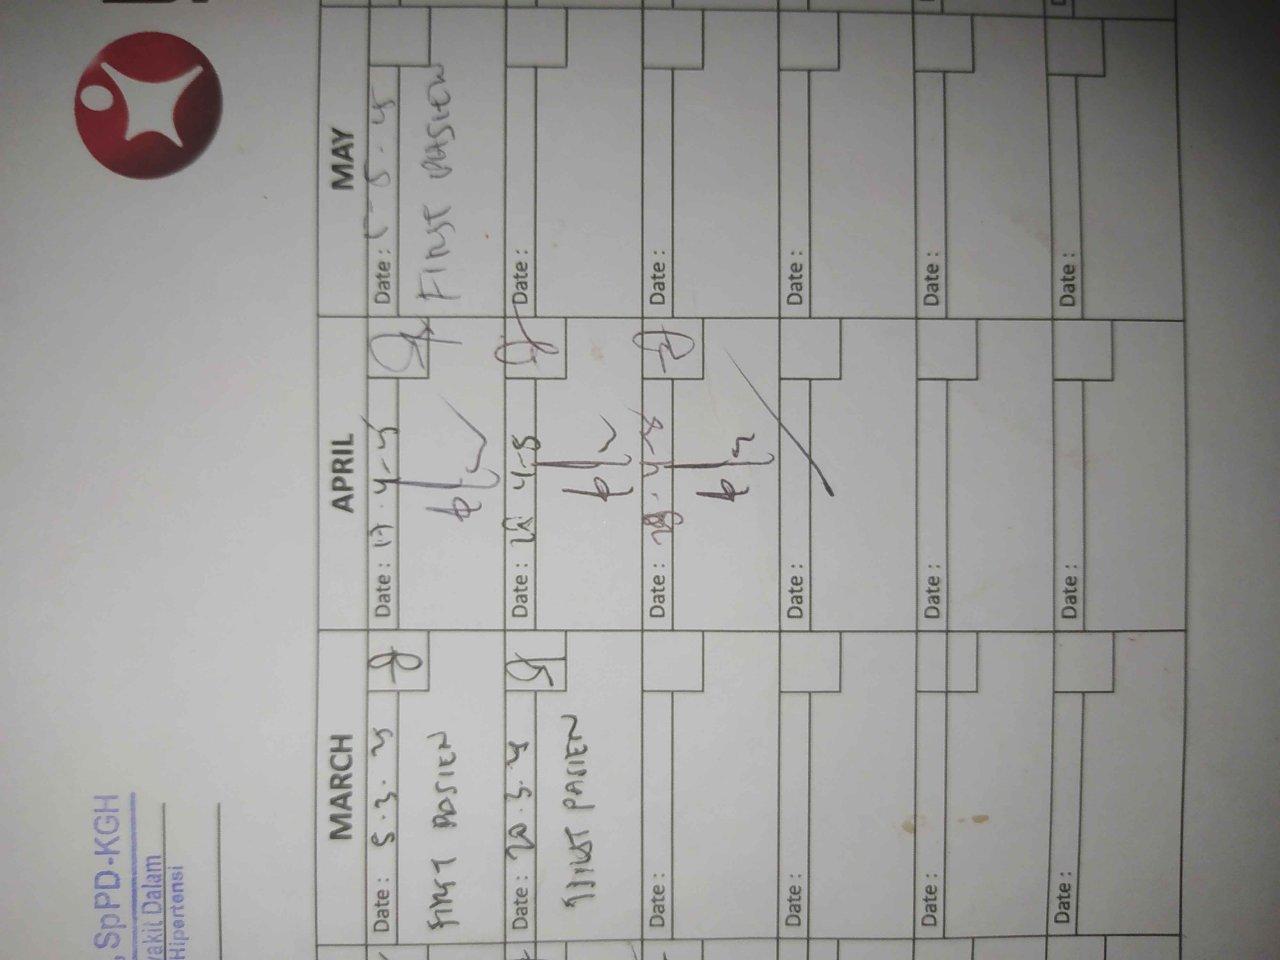 SpPD-KGH
yakit Dalam
Hipertensi
MARCH
APRIL
MAY
Date : 5.3.25
Date : 17.4-25
Date : 5.25
FIRST PASIEN
FIRST PASIEN
Date : 20.3.25
Date : 4-25
Date :
FIRST PASIEN
Date :
Date : 28.4-25
Date :
Date :
Date :
Date :
Date :
Date :
Date :
Date :
Date :
Date :